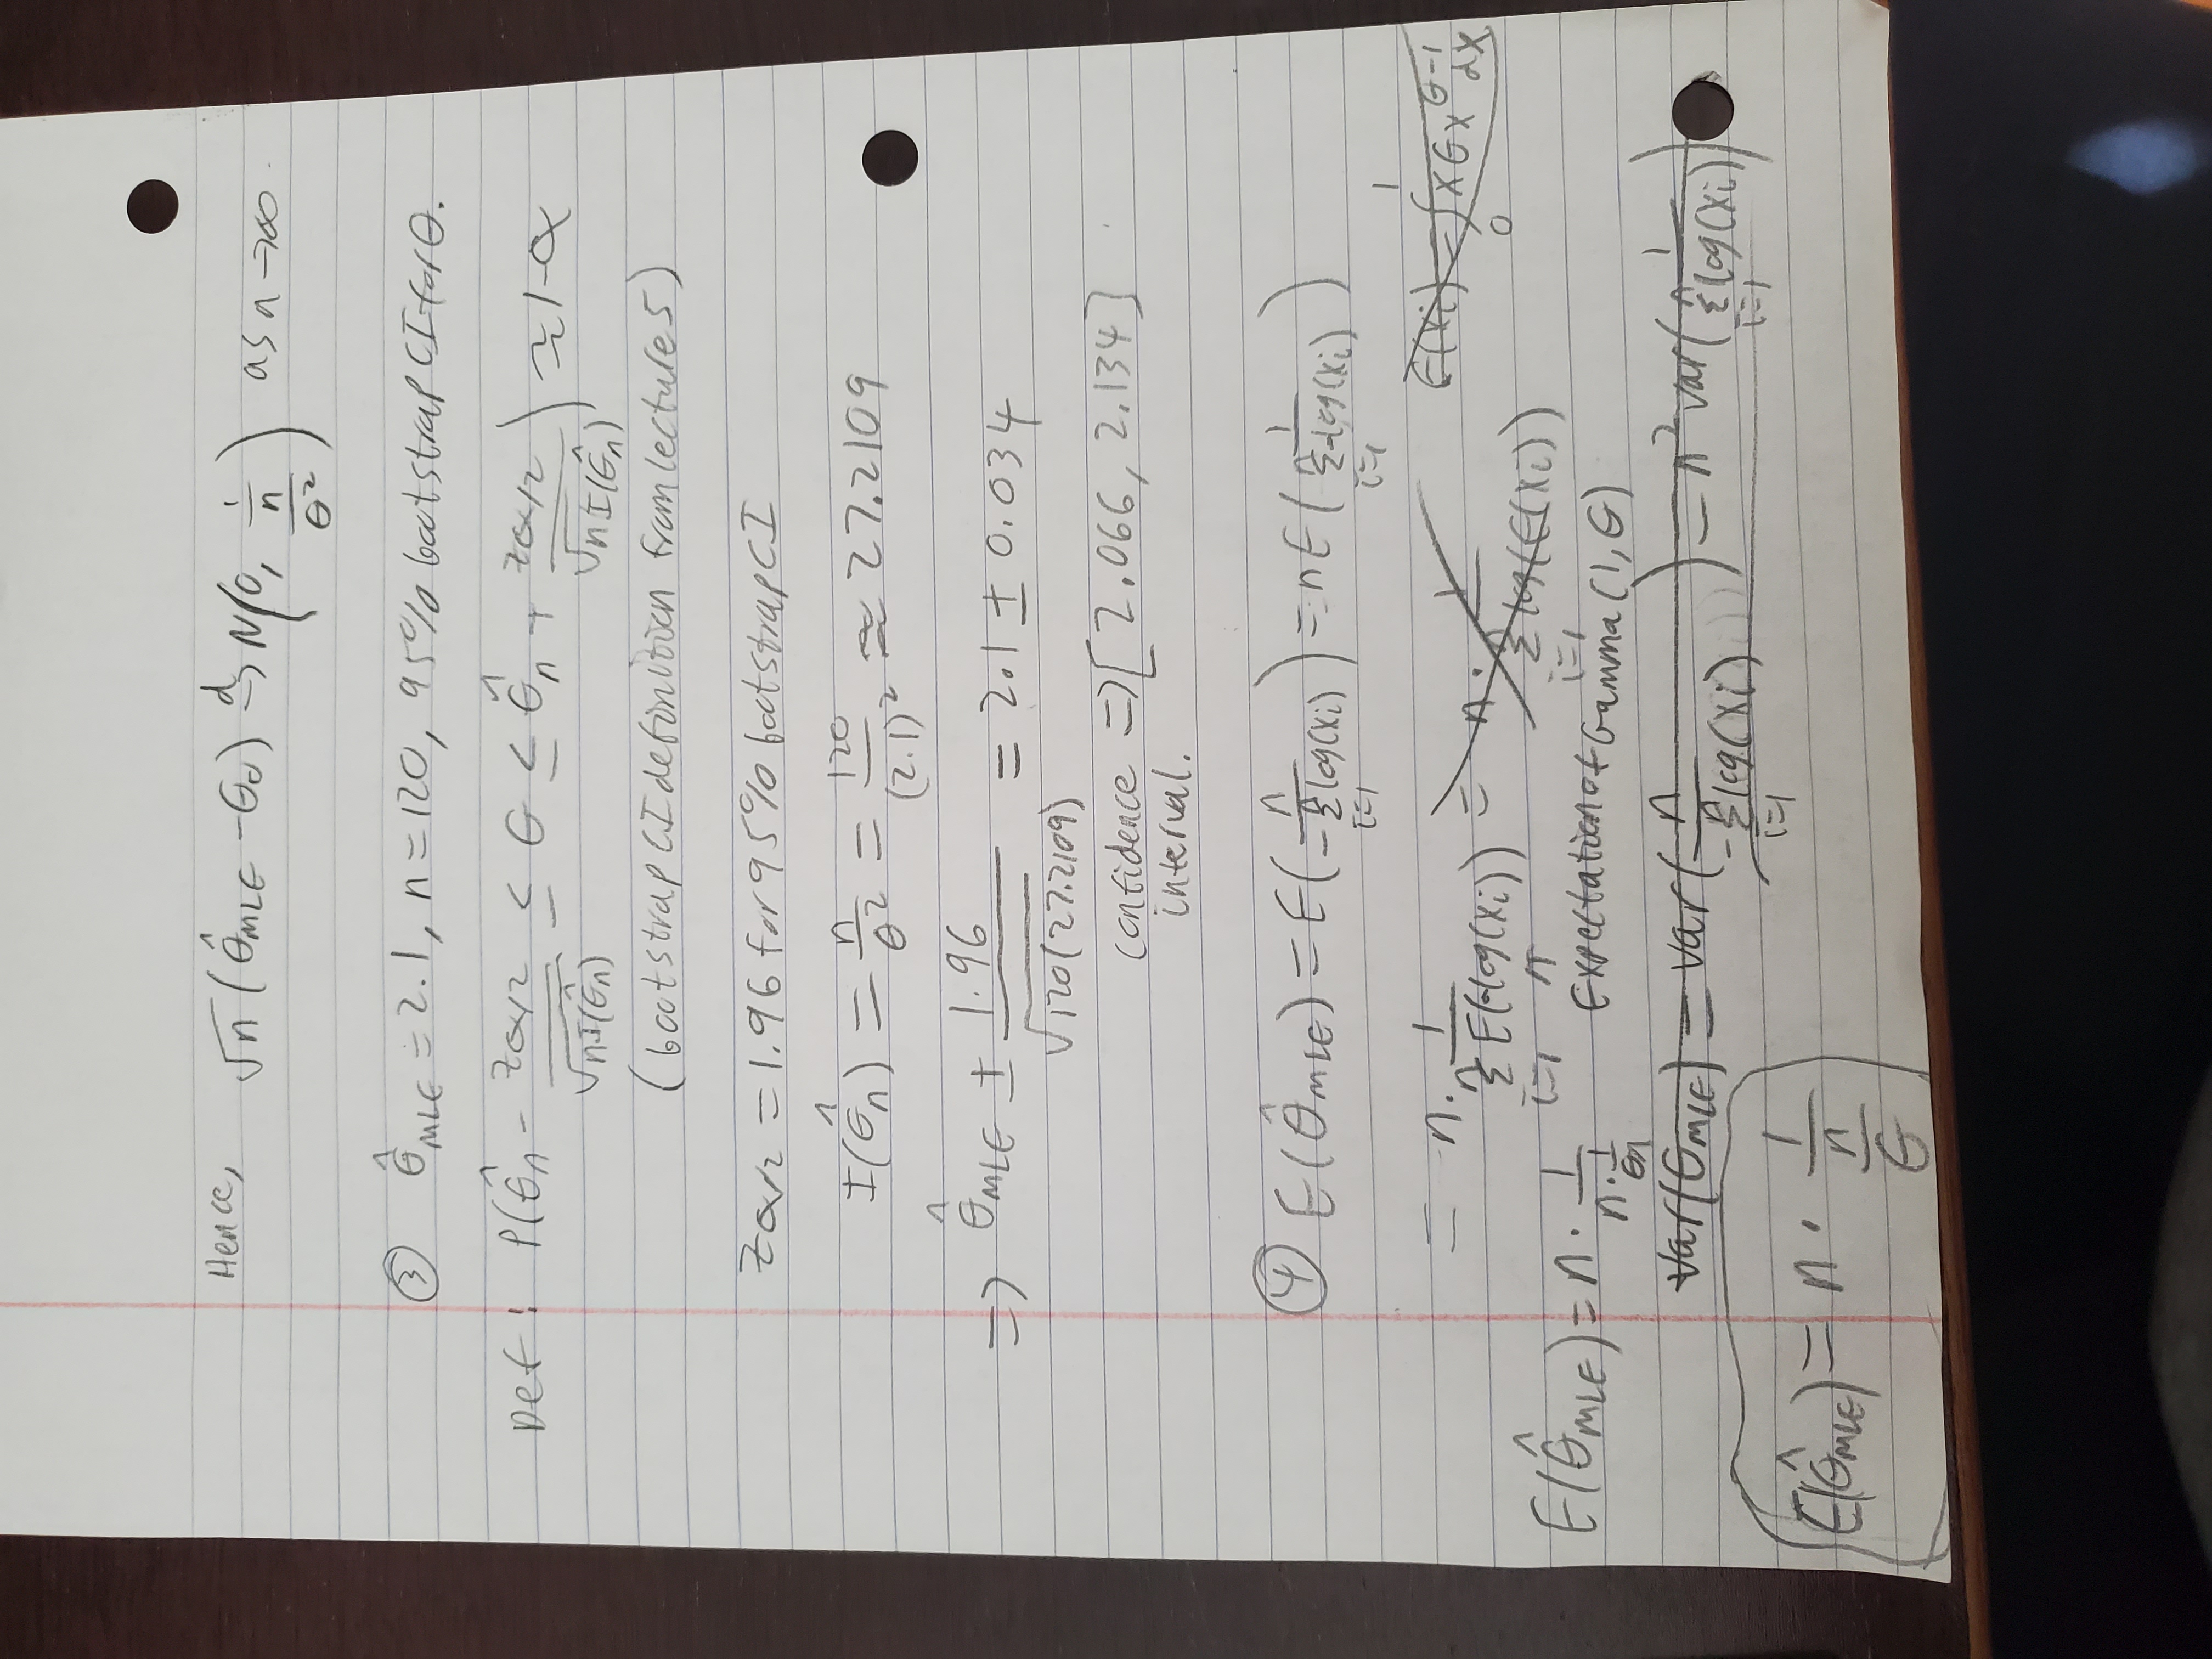 Hence, √n (θ̂_MLE - θ₀) →d N(0, 1/(n/θ²)) as n→∞.
③ θ̂_MLE = 2.1, n=120, 95% bootstrap CI for θ.
Def: P(θ̂_n - z_α/2 / √(nI(θ̂_n)) ≤ θ ≤ θ̂_n + z_α/2 / √(nI(θ̂_n))) ≈ 1-α
(bootstrap CI definition from lecture 5)
z_α/2 = 1.96 for 95% bootstrap CI
I(θ̂_n) = n/θ² = 120/(2.1)² ≈ 27.2109
=> θ̂_MLE ± 1.96/√(120(27.2109)) = 2.1 ± 0.034
confidence => [2.066, 2.134]
interval.
④ E(θ̂_MLE) = E(n / -Σ_{i=1}^n log(xi)) = nE(1 / Σ_{i=1}^n -log(xi))
= n · 1 / Σ_{i=1}^n E(-log(xi)) = n · 1 / Σ_{i=1}^n log(E(xi)) E(xi) = ∫_0^1 x θ x^{θ-1} dx
E(θ̂_MLE) = n · 1/(n · 1/θ) ↑ Expectation of Gamma (1, θ)
Var(θ_MLE) = Var(n / -Σ_{i=1}^n log(xi)) = n² Var(1 / Σ_{i=1}^n log(xi))
E(θ̂_MLE) = n · 1/(n/θ)